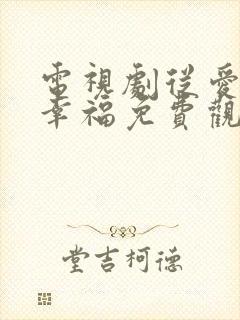 電視劇從愛
幸福免費觀
堂吉柯德